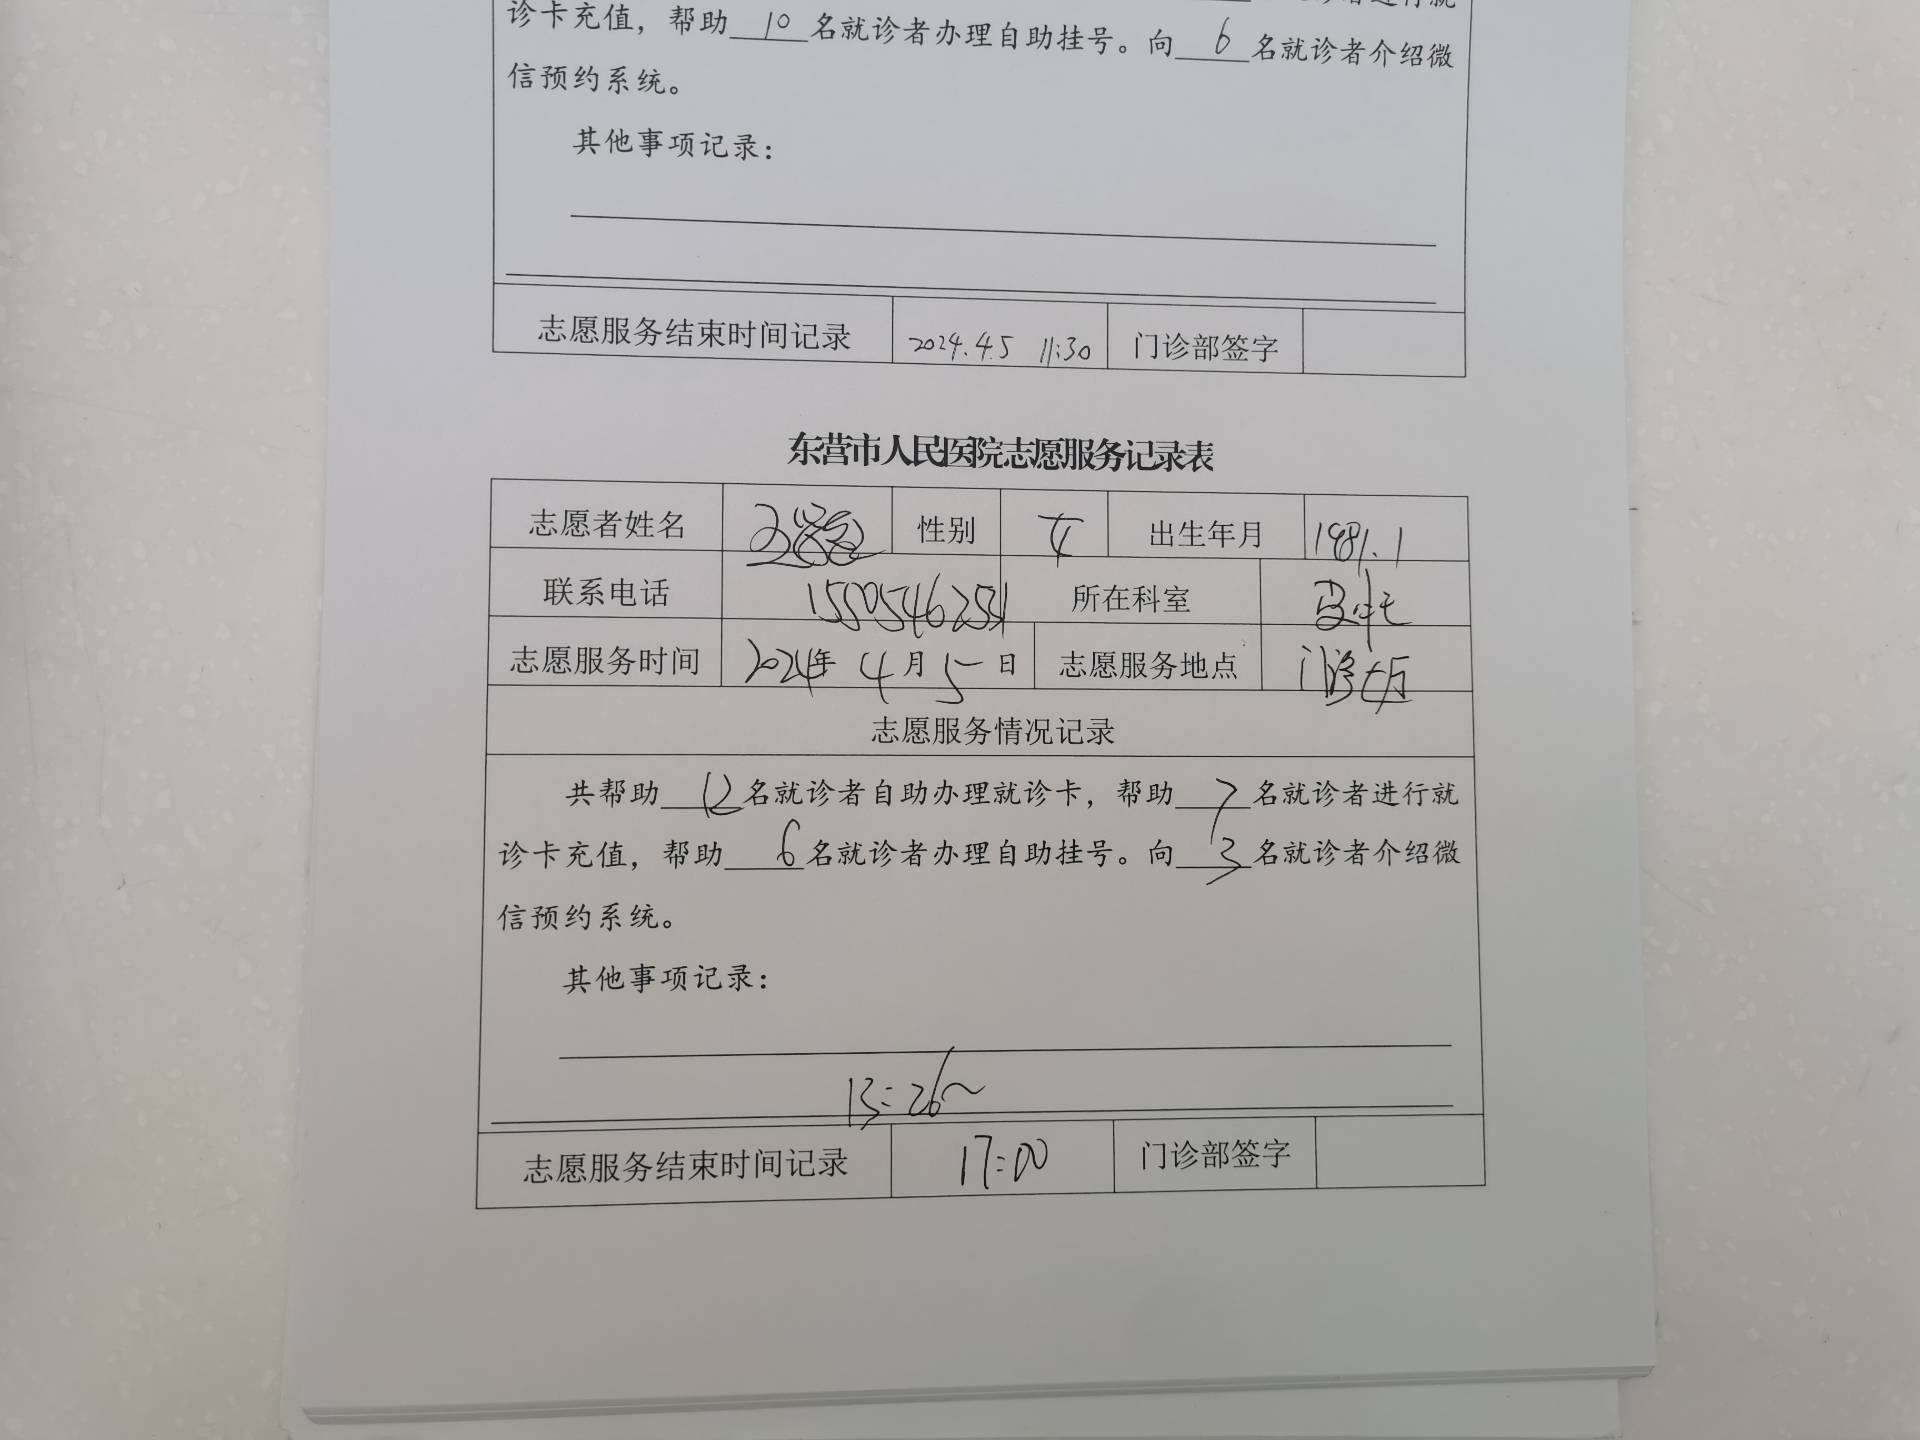 诊卡充值，帮助 10 名就诊者办理自助挂号。向 6 名就诊者介绍微
信预约系统。
其他事项记录：
志愿服务结束时间记录 2024.4.5 11:30 门诊部签字
东营市人民医院志愿服务记录表
志愿者姓名 性别 女 出生年月 1981.1
联系电话 所在科室
志愿服务时间 2024年 4月 5日 志愿服务地点 门诊大厅
志愿服务情况记录
共帮助 12 名就诊者自助办理就诊卡，帮助 7 名就诊者进行就
诊卡充值，帮助 6 名就诊者办理自助挂号。向 3 名就诊者介绍微
信预约系统。
其他事项记录：
13:26~
志愿服务结束时间记录 17:00 门诊部签字